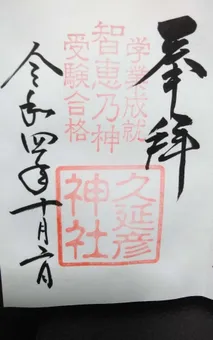 奉拝
学業成就
智恵乃神
受験合格
久延彦
神社
令和四年十月二日